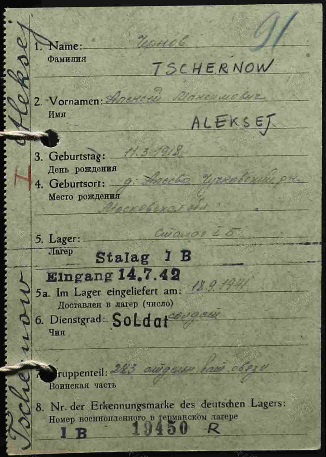 91
1. Name: Чернов
Фамилия
TSCHERNOW
2. Vornamen: Алексей Максимович
Имя
ALEKSEJ
3. Geburtstag: 11.3.1918
День рождения
4. Geburtsort: д.
Место рождения
Московская
5. Lager: Сталаг I Б
Лагер
Stalag I B
Eingang 14.7.42
5a. Im Lager eingeliefert am: 18.9.1941
Доставлен в лагер (число)
6. Dienstgrad: Soldat солдат
Чин
7. Truppenteil: бат связи
Воинская часть
8. Nr. der Erkennungsmarke des deutschen Lagers:
Номер военнопленного в германском лагере
I B 19450 R
Tschernow Aleksej